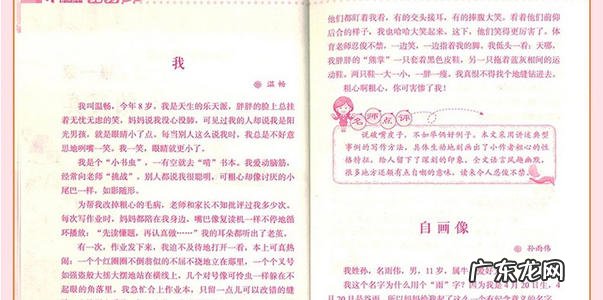 我
温畅
我叫温畅，今年8岁，我是天生的乐天派，胖胖的脸上总挂
着无忧无虑的笑，妈妈说我没心没肺，可见过我的人却说我是阳
光男孩，就是眼睛小了点，每当别人这么说我时，我总是不好意
思地咧嘴一笑，我一笑，眼睛就更小了。
我是个“小书虫”，一有空就去“啃”书本。我爱动脑筋，
经常向老师“挑战”。别人都说我很聪明，可粗心却像讨厌的小
尾巴一样，如影随形。
为帮我改掉粗心的毛病，老师和家长不知批评过我多少次。
每次写作业时，妈妈都陪在我身边，嘴巴像复读机一样不停地循
环播放：“先读懂题，再认真做……”我的耳朵都听出了老茧。
有一次，作业发下来，我迫不及待地打开一看，本上可真热
闹：一个个红圈圈不倒翁似的在那里站立不住，一个个叉号
如强盗般大摇大摆站在横线上，几个对号像可怜虫一样躲在不
起眼的角落里。我急忙合上作业本，只留一点儿可以改错的缝
他们都盯着我看，有的交头接耳，有的捧腹大笑。看着他们前仰
后合的样子，我也哈哈大笑起来。这下，他们笑得更厉害了。体
育老师忍俊不禁，一边笑，一边指着我的脚。我低头一看：天哪，
我胖胖的“熊掌”一只套着黑色皮鞋，另一只拖着蓝灰相间的运
动鞋。两只鞋一大一小、一胖一瘦。我真恨不得找个地缝钻进去。
粗心啊粗心，你可害惨了我！
名师点评
说破嘴皮子，不如举俩好例子。本文采用讲述典型
事例的写作方法，具体生动地刻画出了小作者粗心的性
格特征，给人留下了深刻的印象。全文语言风趣幽默，
很多地方还颇有点自嘲的意味，读来令人忍俊不禁。
自画像
孙雨伟
我姓孙，名雨伟，男，11岁，属牛
我这个名字为什么用个“雨”字？因为我是4月20日生，4
广东龙网